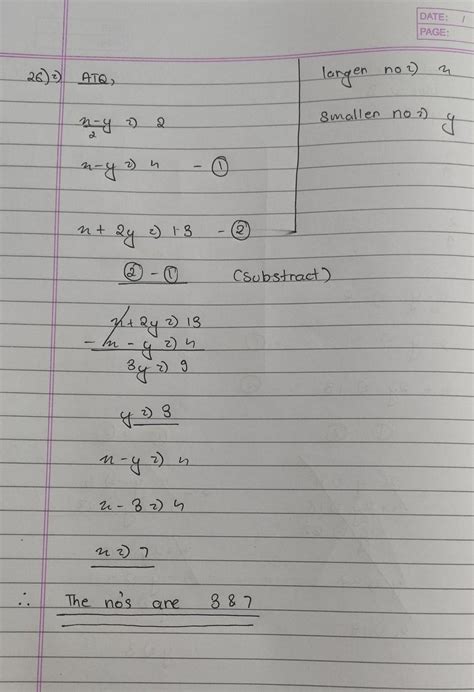 DATE: /
PAGE:
26) ⇒ ATQ,
larger no ⇒ x
smaller no ⇒ y
(x-y)/2 ⇒ 2
x-y ⇒ 4 - ①
x + 2y ⇒ 13 - ②
② - ① (Substract)
x + 2y ⇒ 13
- x - y ⇒ 4
3y ⇒ 9
y ⇒ 3
x-y ⇒ 4
x - 3 ⇒ 4
x ⇒ 7
∴ The no's are 3 & 7